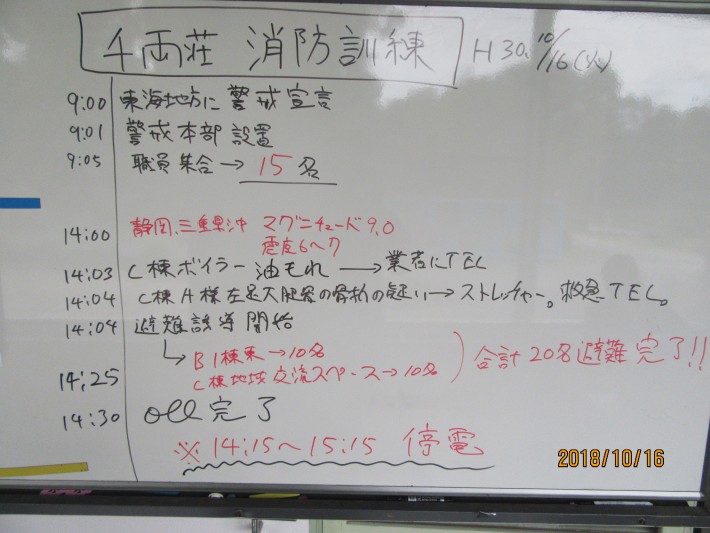 千両荘 消防訓練 H30. 10/16(火)
9:00 東海地方に警戒宣言
9:01 警戒本部設置
9:05 職員集合→15名
14:00 静岡、三重県沖 マグニチュード9.0
震度6〜7
14:03 C棟ボイラー油もれ→業者にTEL
14:04 C棟A様左足大腿骨の骨折の疑い→ストレッチャー。救急TEL。
14:04 避難誘導開始
→B1棟東→10名
14:25 C棟地域交流スペース→10名 ) 合計20名避難完了!!
14:30 all完了
※14:15〜15:15 停電
2018/10/16